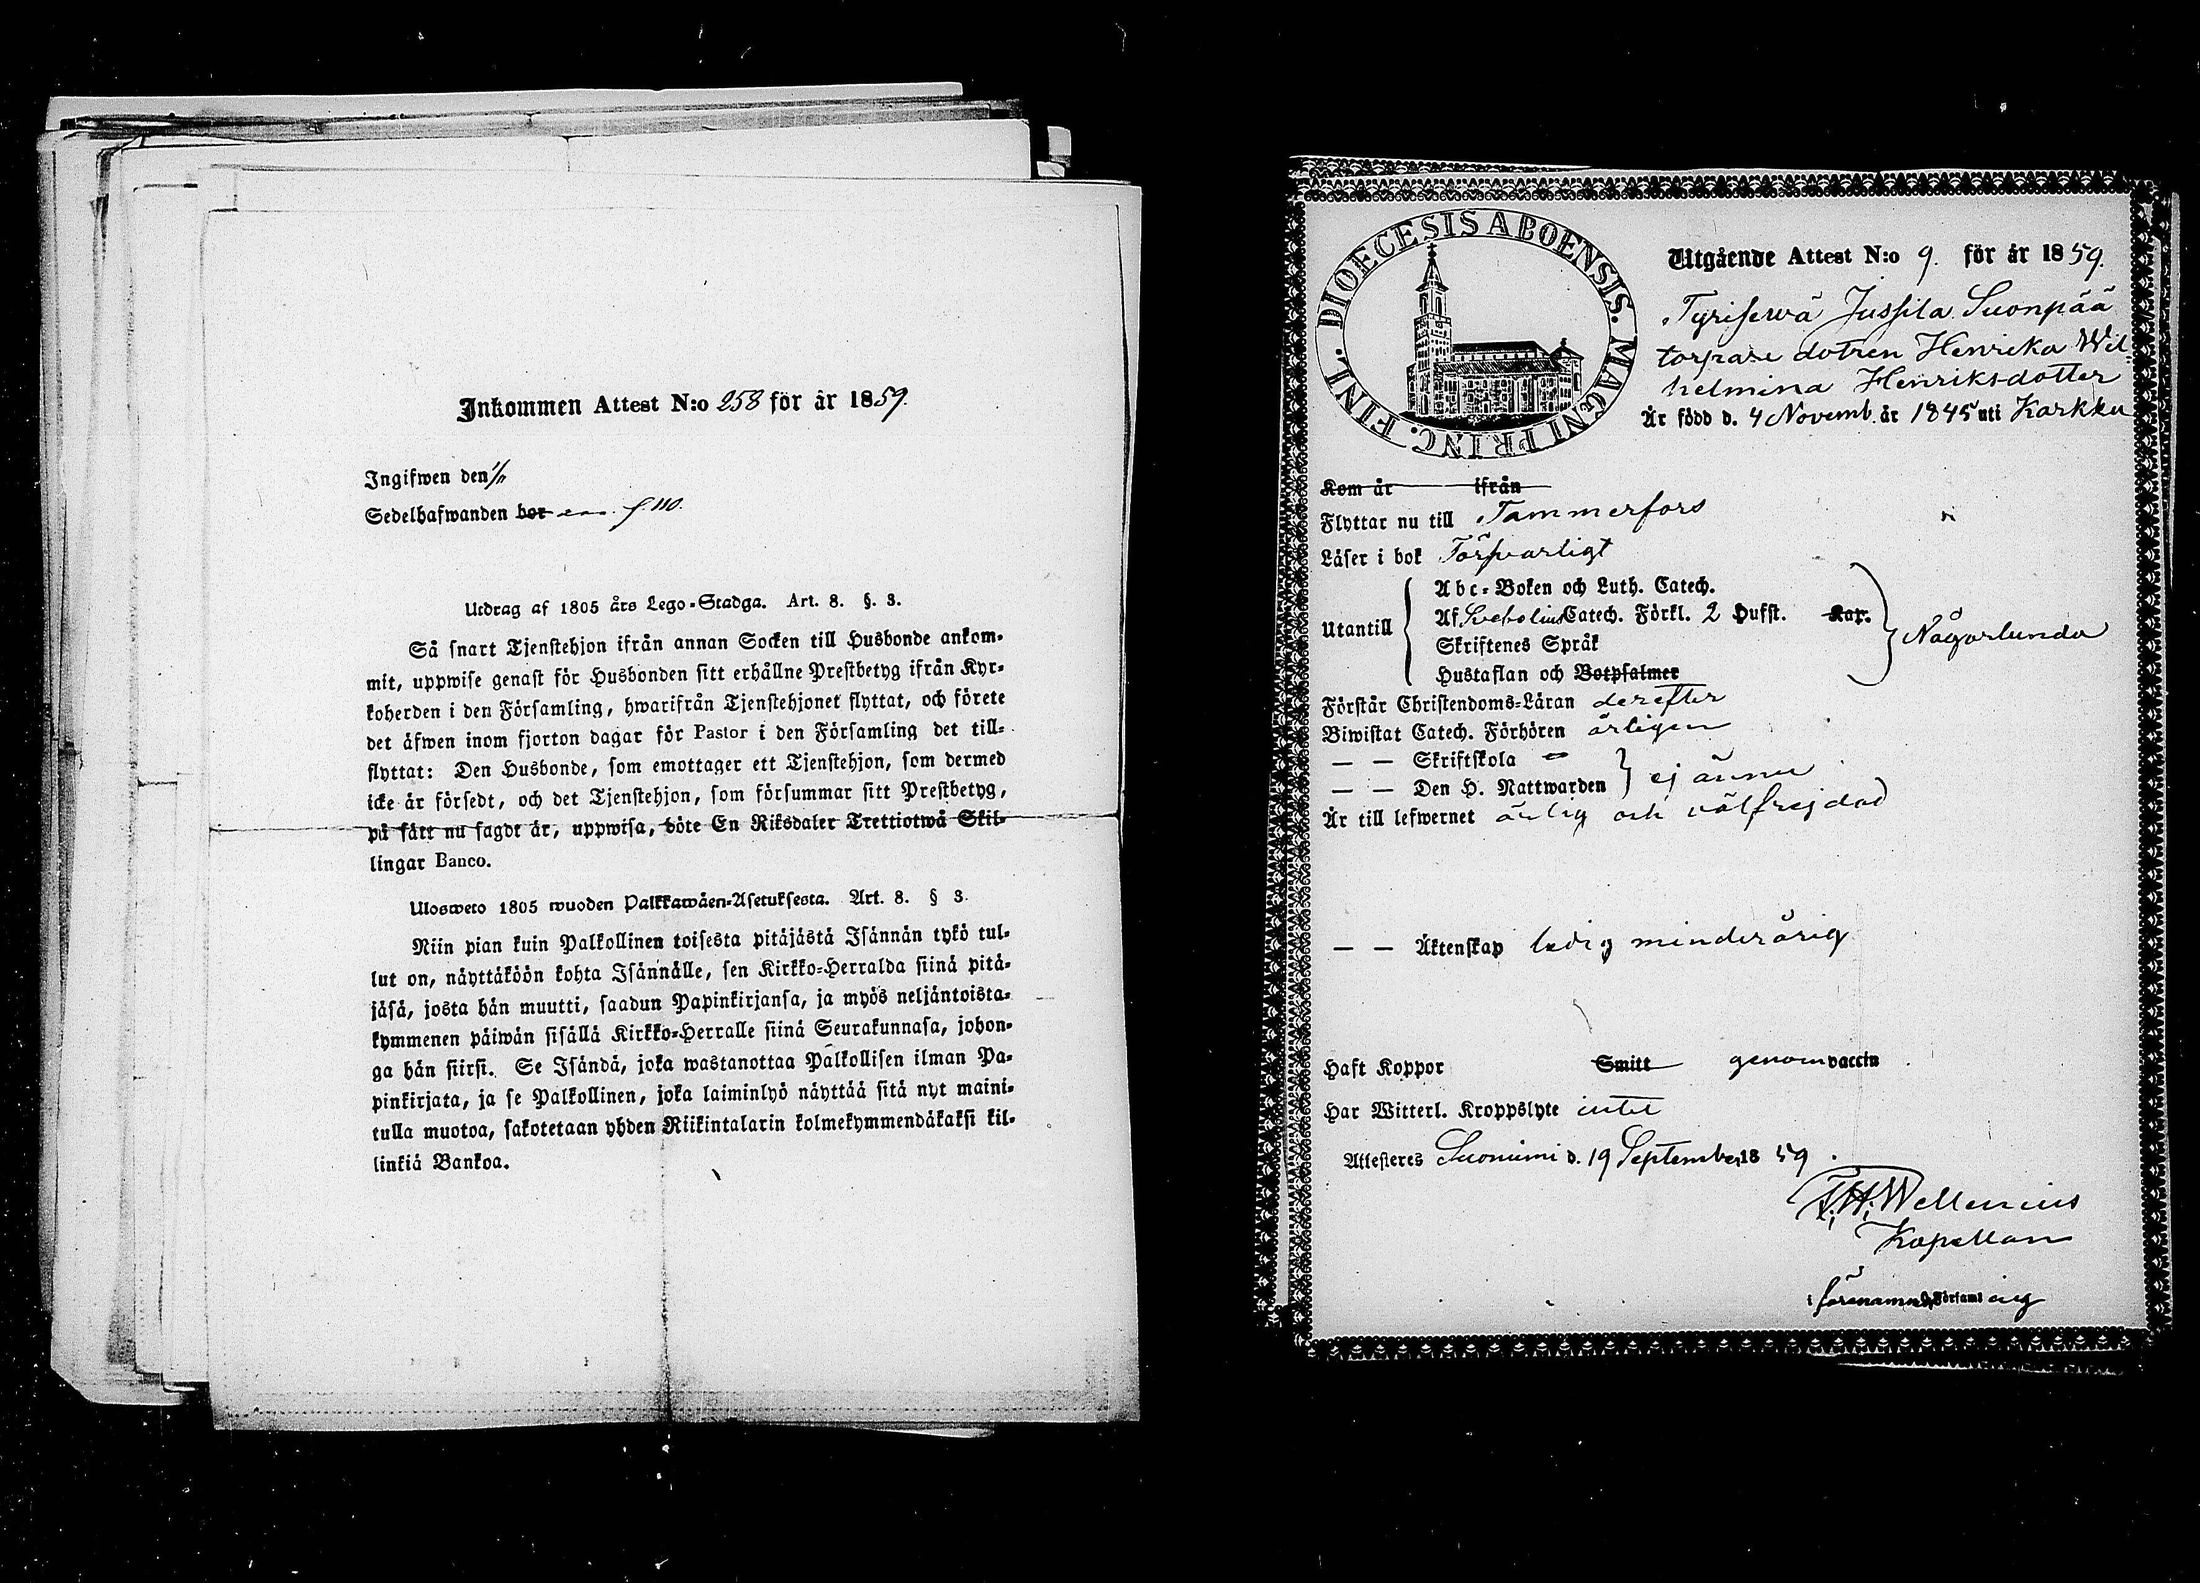 Inkommen Attest N:o 258 för år 1859.
Ingifwen den 1/11
Sedelhafwanden bor f. 110.
Utdrag af 1805 års Lego-Stadga. Art. 8. §. 3.
Så snart Tjenstehjon ifrån annan Socken till Husbonde ankom-
mit, uppwise genast för Husbonden sitt erhållne Prestbetyg ifrån Kyr-
koherden i den Församling, hwarifrån Tjenstehjonet flyttat, och förete
det äfwen inom fjorton dagar för Pastor i den Församling det till-
flyttat: Den Husbonde, som emottager ett Tjenstehjon, som dermed
icke är försedt, och det Tjenstehjon, som försummar sitt Prestbetyg,
på sätt nu sagdt är, uppwisa, böte En Riksdaler Trettiotwå Skil-
lingar Banco.
Ulosweto 1805 wuoden Palkkawäen-Asetuksesta. Art. 8. § 3.
Niin pian kuin Palkollinen toisesta pitäjästä Isännän tykö tul-
lut on, näyttäköön kohta Isännälle, sen Kirkko-Herralda siinä pitä-
jäsä, josta hän muutti, saadun Papinkirjansa, ja myös neljäntoista-
kymmenen päiwän sisällä Kirkko-Herralle siinä Seurakunnasa, johon-
ga hän siirsi. Se Isändä, joka wastanottaa Palkollisen ilman Pa-
pinkirjata, ja se Palkollinen, joka laiminlyö näyttää sitä nyt maini-
tulla muotoa, sakotetaan yhden Riikintalarin kolmekymmendäkaksi kil-
linkiä Bankoa.
DIOECESIS ABOENSIS. MAGNI PRINC. FINL.
Utgående Attest N:o 9. för år 1859.
Tyrisewä Jussila Suonpää
torpare dotren Henrika Wil-
helmina Henriksdotter
Är född d. 4 Novemb. år 1845 uti Karkku
Kom år ifrån
Flyttar nu till Tammerfors
Läser i bok Försvarligt
Utantill
Abc-Boken och Luth. Catech.
Af Svebelius Catech. Förkl. 2 Hufst. Kap.
Skriftenes Språk
Hustaflan och Botpsalmer
Någorlunda
Förstår Christendoms-Läran derefter
Biwistat Catech. Förhören årligen
— — Skriftskola
— — Den H. Nattwarden ej ännu
Är till lefwernet ärlig och välfrejdad
— — Äktenskap ledig minderårig
Haft Koppor Smitt genom vaccin
Har Witterl. Kroppslyte intet
Attesteres Suoniemi d. 19 September 1859.
F. H. Wellenius
Kapellan
i förenämnde Församling